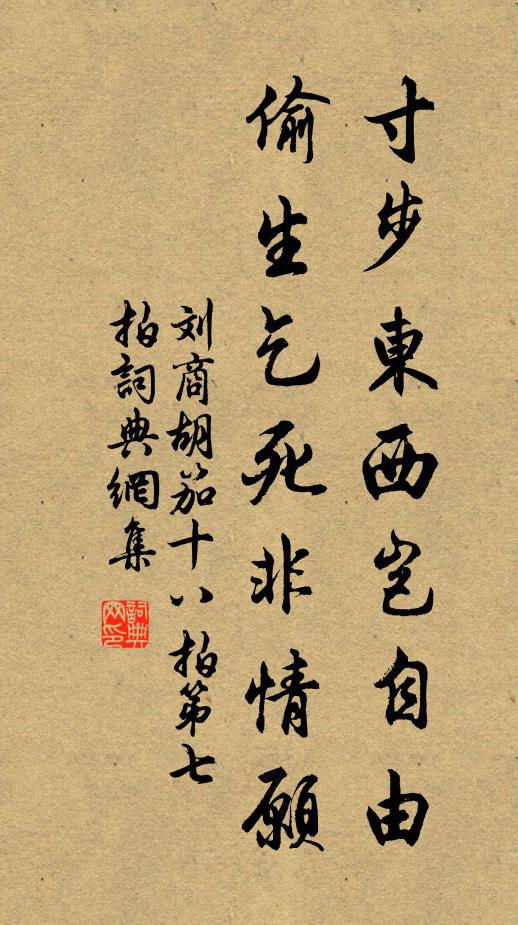 寸步東西岂自由
偷生乞死非情願
刘商胡笳十八拍第七
拍詞典網集
詞典
网印